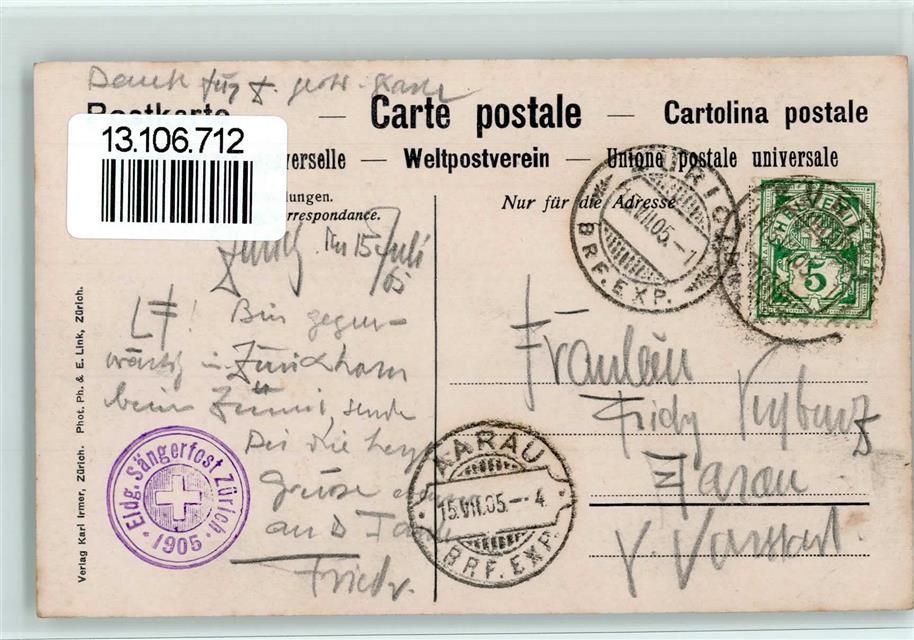 Dank für f.
Postkarte — Carte postale — Cartolina postale
13.106.712
verselle — Weltpostverein — Unione postale universale
lungen.
rrespondance.
Nur für die Adresse
ZÜRICH
VII.05.-7
BRF.EXP.
HELVETIA
5
Zürich, den 15 Juli
05
L F! Bin gegen-
wärtig in Zürichhorn
beim Znüni, sende
Dir die herzl
Grüsse
an D
Friedr.
Fräulein
Fridy Kyburz
Aarau
AARAU
15.VII.05.-4
BRF.EXP.
Eidg. Sängerfest Zürich
1905
Verlag Karl Irmer, Zürich. Phot. Ph. & E. Link, Zürich.